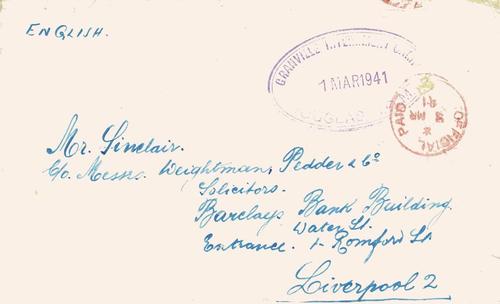 ENGLISH.
GRANVILLE INTERNMENT CAMP
1 MAR 1941
DOUGLAS
OFFICIAL PAID
MR
41
Mr. Sinclair.
C/o. Messrs. Weightman, Pedder & Co
Solicitors.
Barclays Bank Building.
Water St.
Entrance. 1- Romford St
Liverpool 2